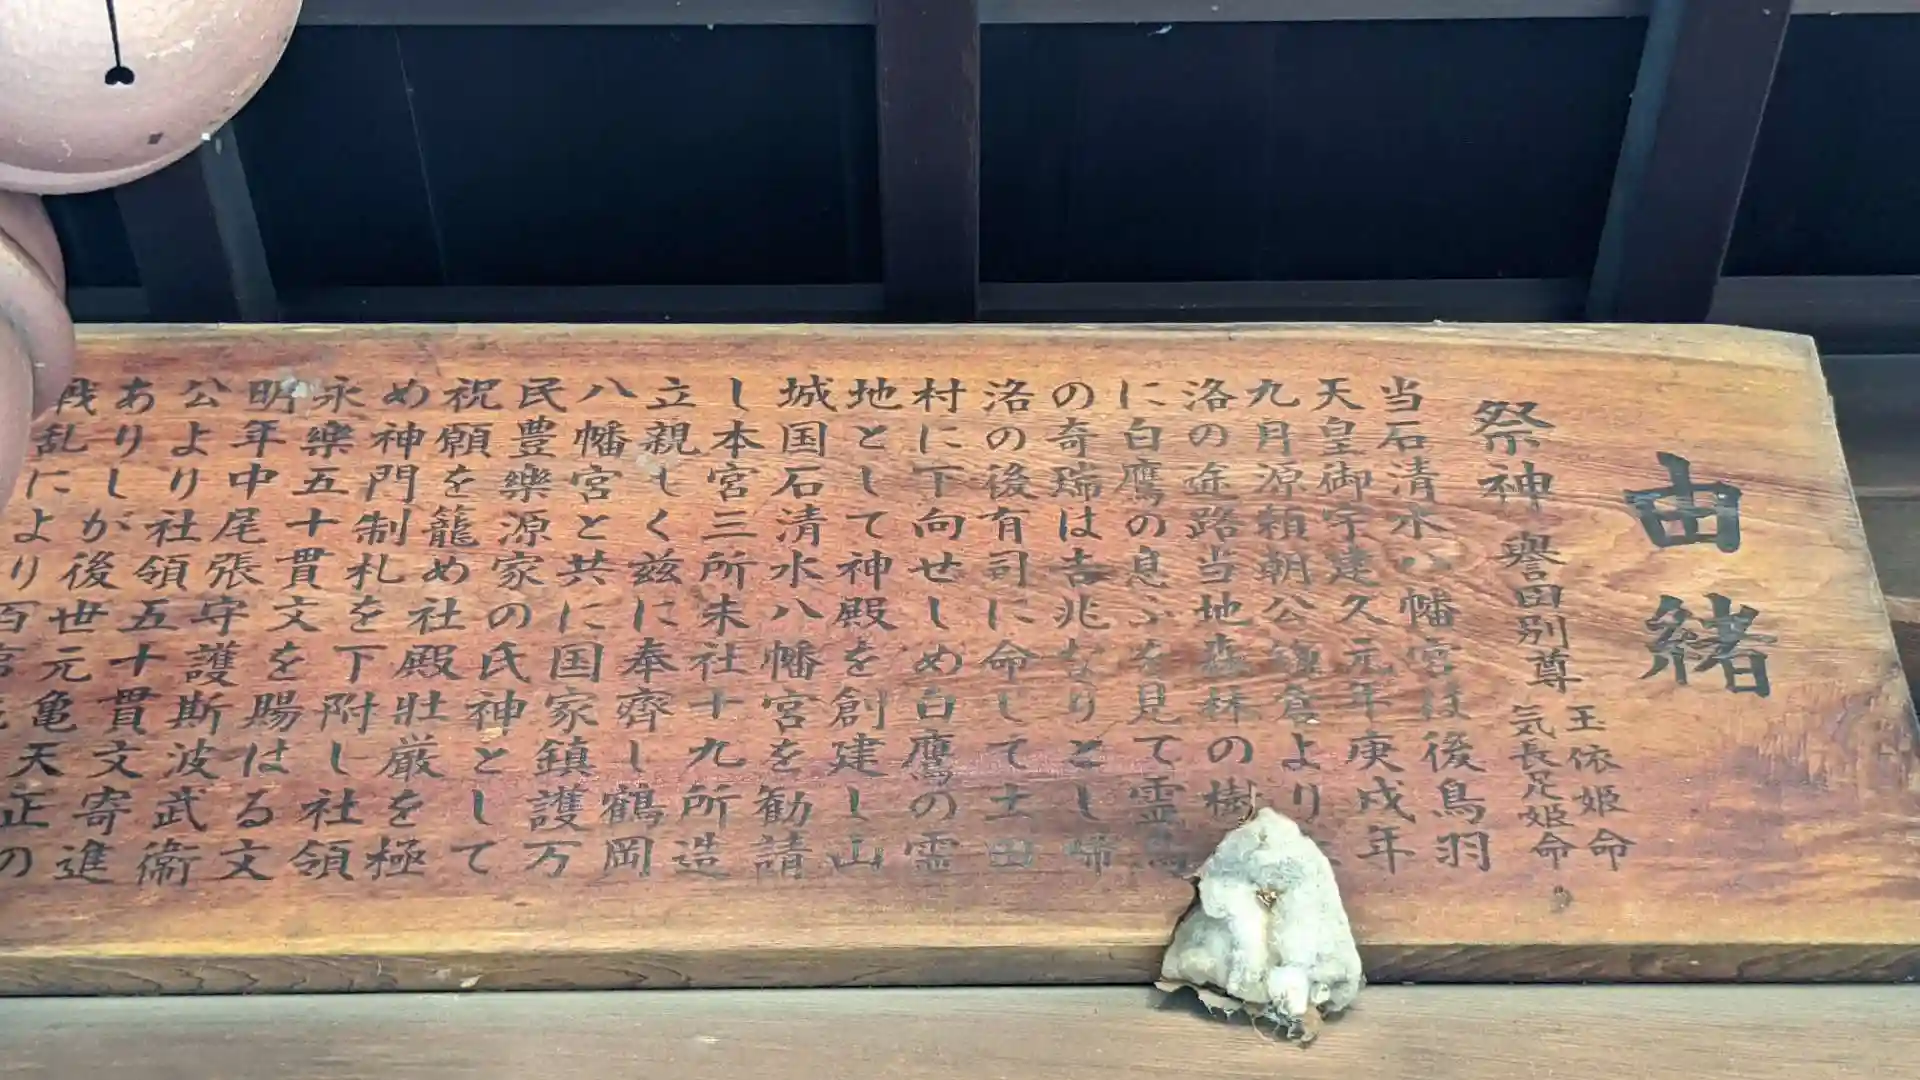 由緒
祭神 譽田別尊 玉依姫命
気長足姫命
当石清水八幡宮は後鳥羽
天皇御宇建久元年庚戌年
九月源頼朝公鎌倉より
洛の途路当地森林の樹
に白鷹の息ふを見て霊鳥
の奇瑞は吉兆なりとし帰
洛の後有司に命して士田
村に下向せしめ白鷹の霊
地として神殿を創建し山
城国石清水八幡宮を勧請
し本宮三所末社十九所造
立親しく茲に奉齊し鶴岡
八幡宮と共に国家鎮護万
民豊樂源家の氏神として
祝願を籠め社殿壮厳を極
め神門制札を下附し社領
永樂五十貫文を賜はる文
明年中尾張守護斯波武衞
公より社領五十貫文寄進
ありしが後世元亀天正の
戦乱により